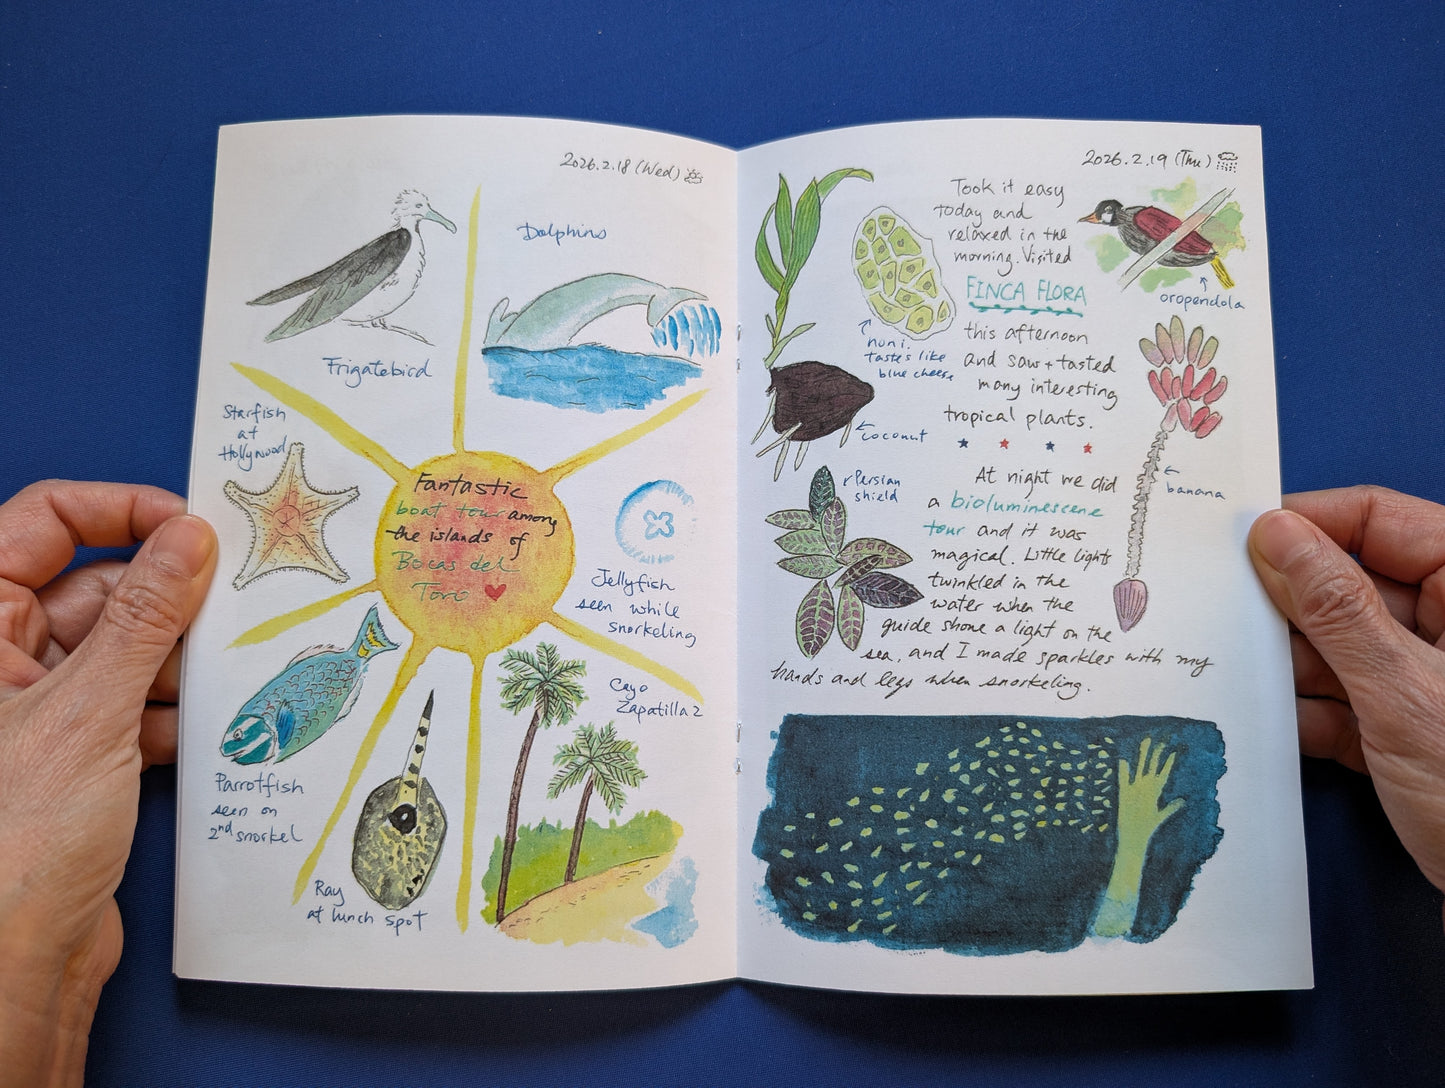 2026.2.18 (Wed)
Frigatebird
Dolphins
Starfish
at
Hollywood
Fantastic
boat tour among
the islands of
Bocas del
Toro
Jellyfish
seen while
snorkeling
Parrotfish
seen on
2nd snorkel
Ray
at lunch spot
Cayo
Zapatilla 2
2026.2.19 (Thu)
Took it easy
today and
relaxed in the
morning. Visited
FINCA FLORA
this afternoon
and saw + tasted
many interesting
tropical plants.
oropendola
noni.
tastes like
blue cheese
coconut
Persian
shield
banana
At night we did
a bioluminescene
tour and it was
magical. Little lights
twinkled in the
water when the
guide shone a light on the
sea, and I made sparkles with my
hands and legs when snorkeling.